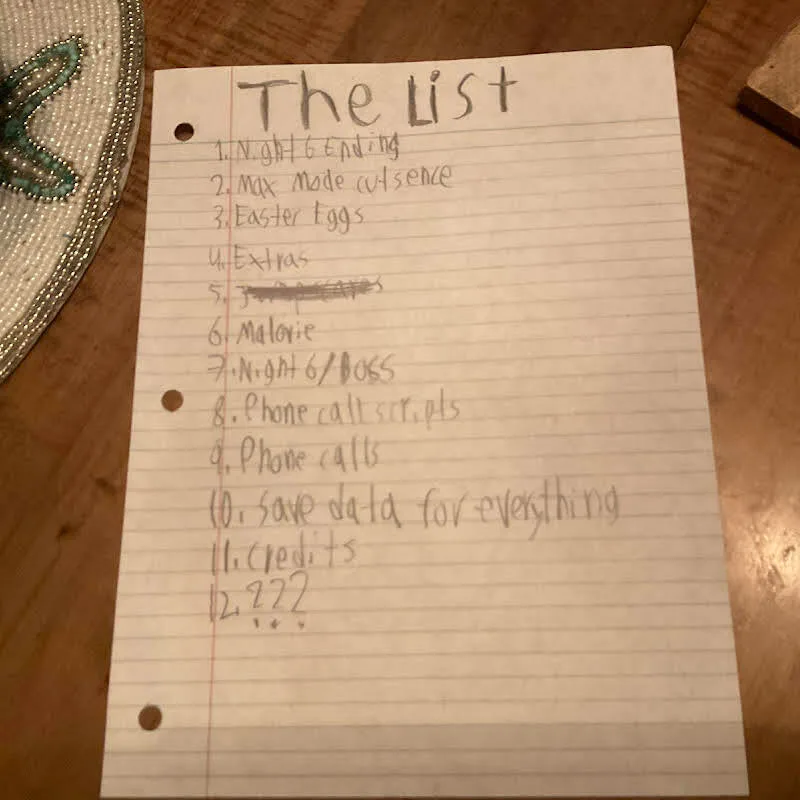 The List
1. Night 6 Ending
2. Max Mode cutsence
3. Easter Eggs
4. Extras
5.
6. Malorie
7. Night 6/Boss
8. Phone call scripts
9. Phone calls
10. Save data for everything
11. Credits
12. ???